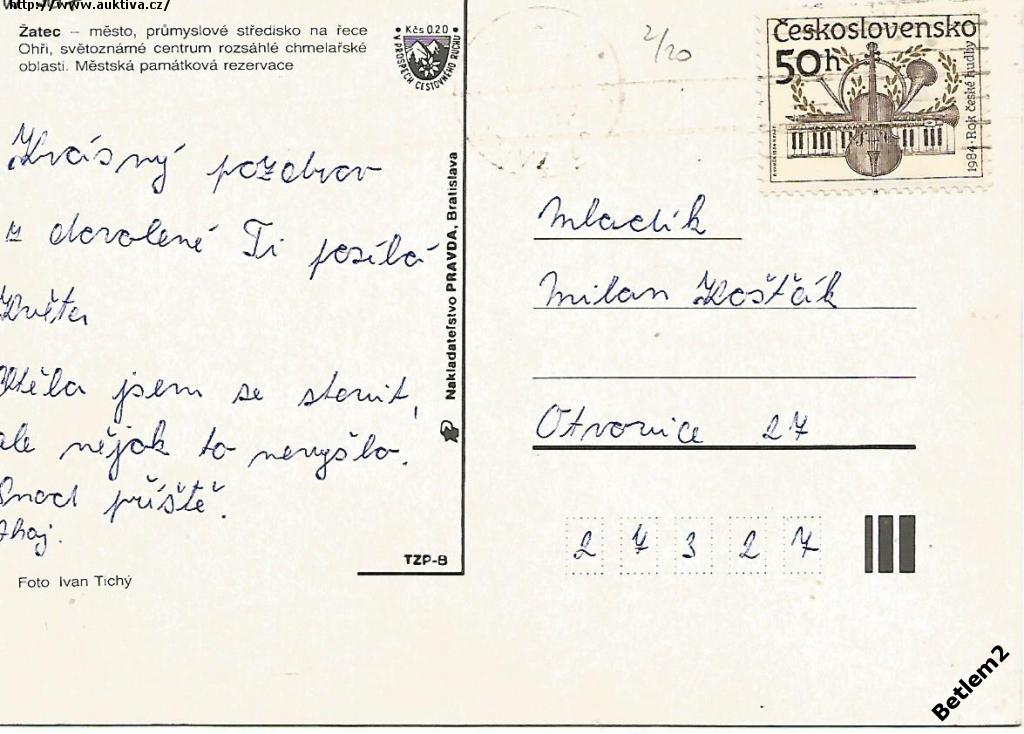 http://www.auktiva.cz/
Žatec – město, průmyslové středisko na řece
Ohři, světoznámé centrum rozsáhlé chmelařské
oblasti. Městská památková rezervace
• Kčs 0.20 •
V PROSPĚCH CESTOVNÉHO RUCHU
2/20
Československo
50h
1984 · Rok české hudby
Krásný pozdrav
z dovolené Ti posílá
Květa
Chtěla jsem se stavit,
ale nějak to nevyšlo.
Snad příště.
Ahoj.
Foto Ivan Tichý
Nakladateľstvo PRAVDA, Bratislava
TZP-B
Mladík
Milan Košťák
Otvovice 27
27327
Betlem2